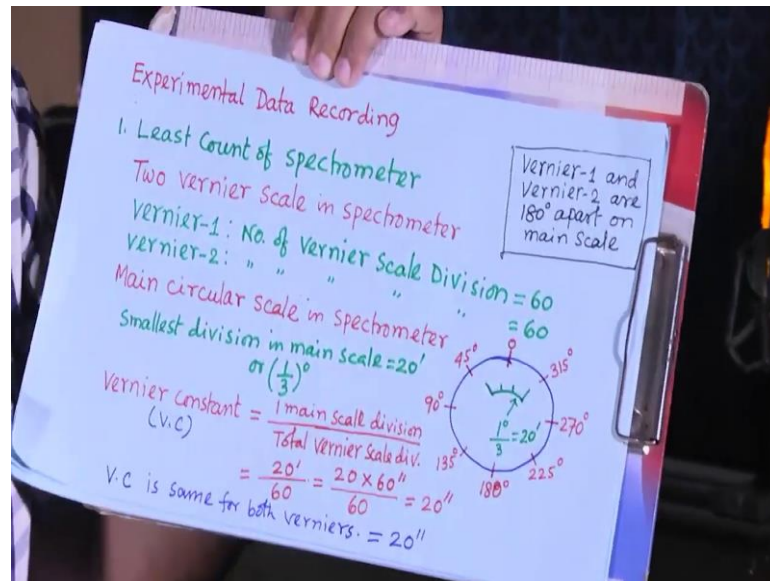 Experimental Data Recording
1. Least Count of spectrometer
Two vernier scale in spectrometer
Vernier-1: No. of Vernier Scale Division = 60
Vernier-2: " " " " " = 60
Main circular scale in spectrometer
Smallest division in main scale = 20'
or (1/3)°
Vernier constant = 1 main scale division / Total Vernier scale div.
(V.C)
= 20'/60 = 20 x 60"/60 = 20"
V.C is same for both verniers. = 20"
Vernier-1 and
Vernier-2 are
180° apart on
main scale
0
45°
315°
90°
270°
1°/3 = 20'
135°
225°
180°